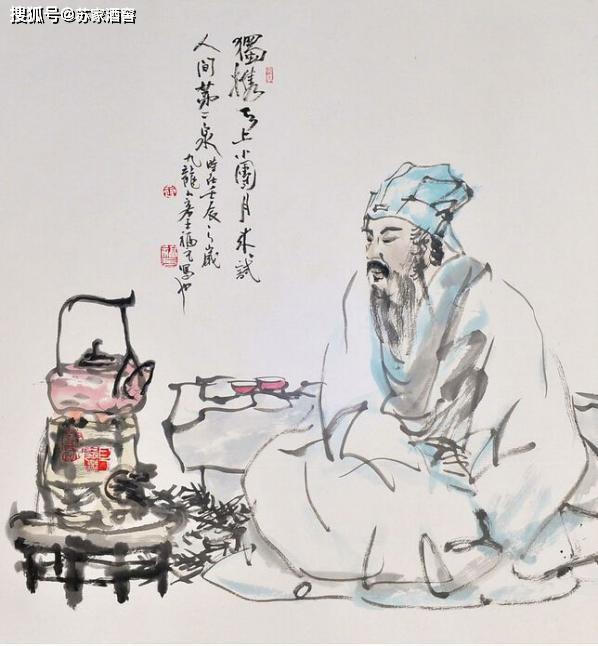 搜狐号@苏家酒窖
獨攜天上小團月來試
人间第二泉 時在壬辰之歲
九龍 士福 寫